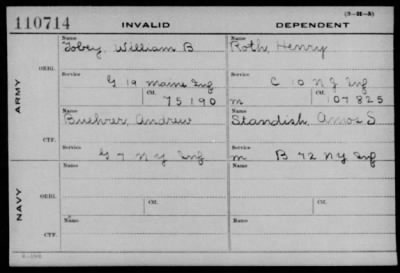 (3-21-5)
110714 INVALID DEPENDENT
Name Name
Tobey, William B Roth, Henry
ORIG.
Service Service
G 19 Maine Inf C 10 N J Inf
ARMY
Ctf. Ctf.
75190 m 107825
Name Name
Buehrer, Andrew Standish, Amos S
CTF.
Service Service
G 7 N Y Inf m B 72 N Y Inf
Name Name
NAVY
ORIG.
Service Service
Ctf. Ctf.
Name Name
CTF.
Service Service